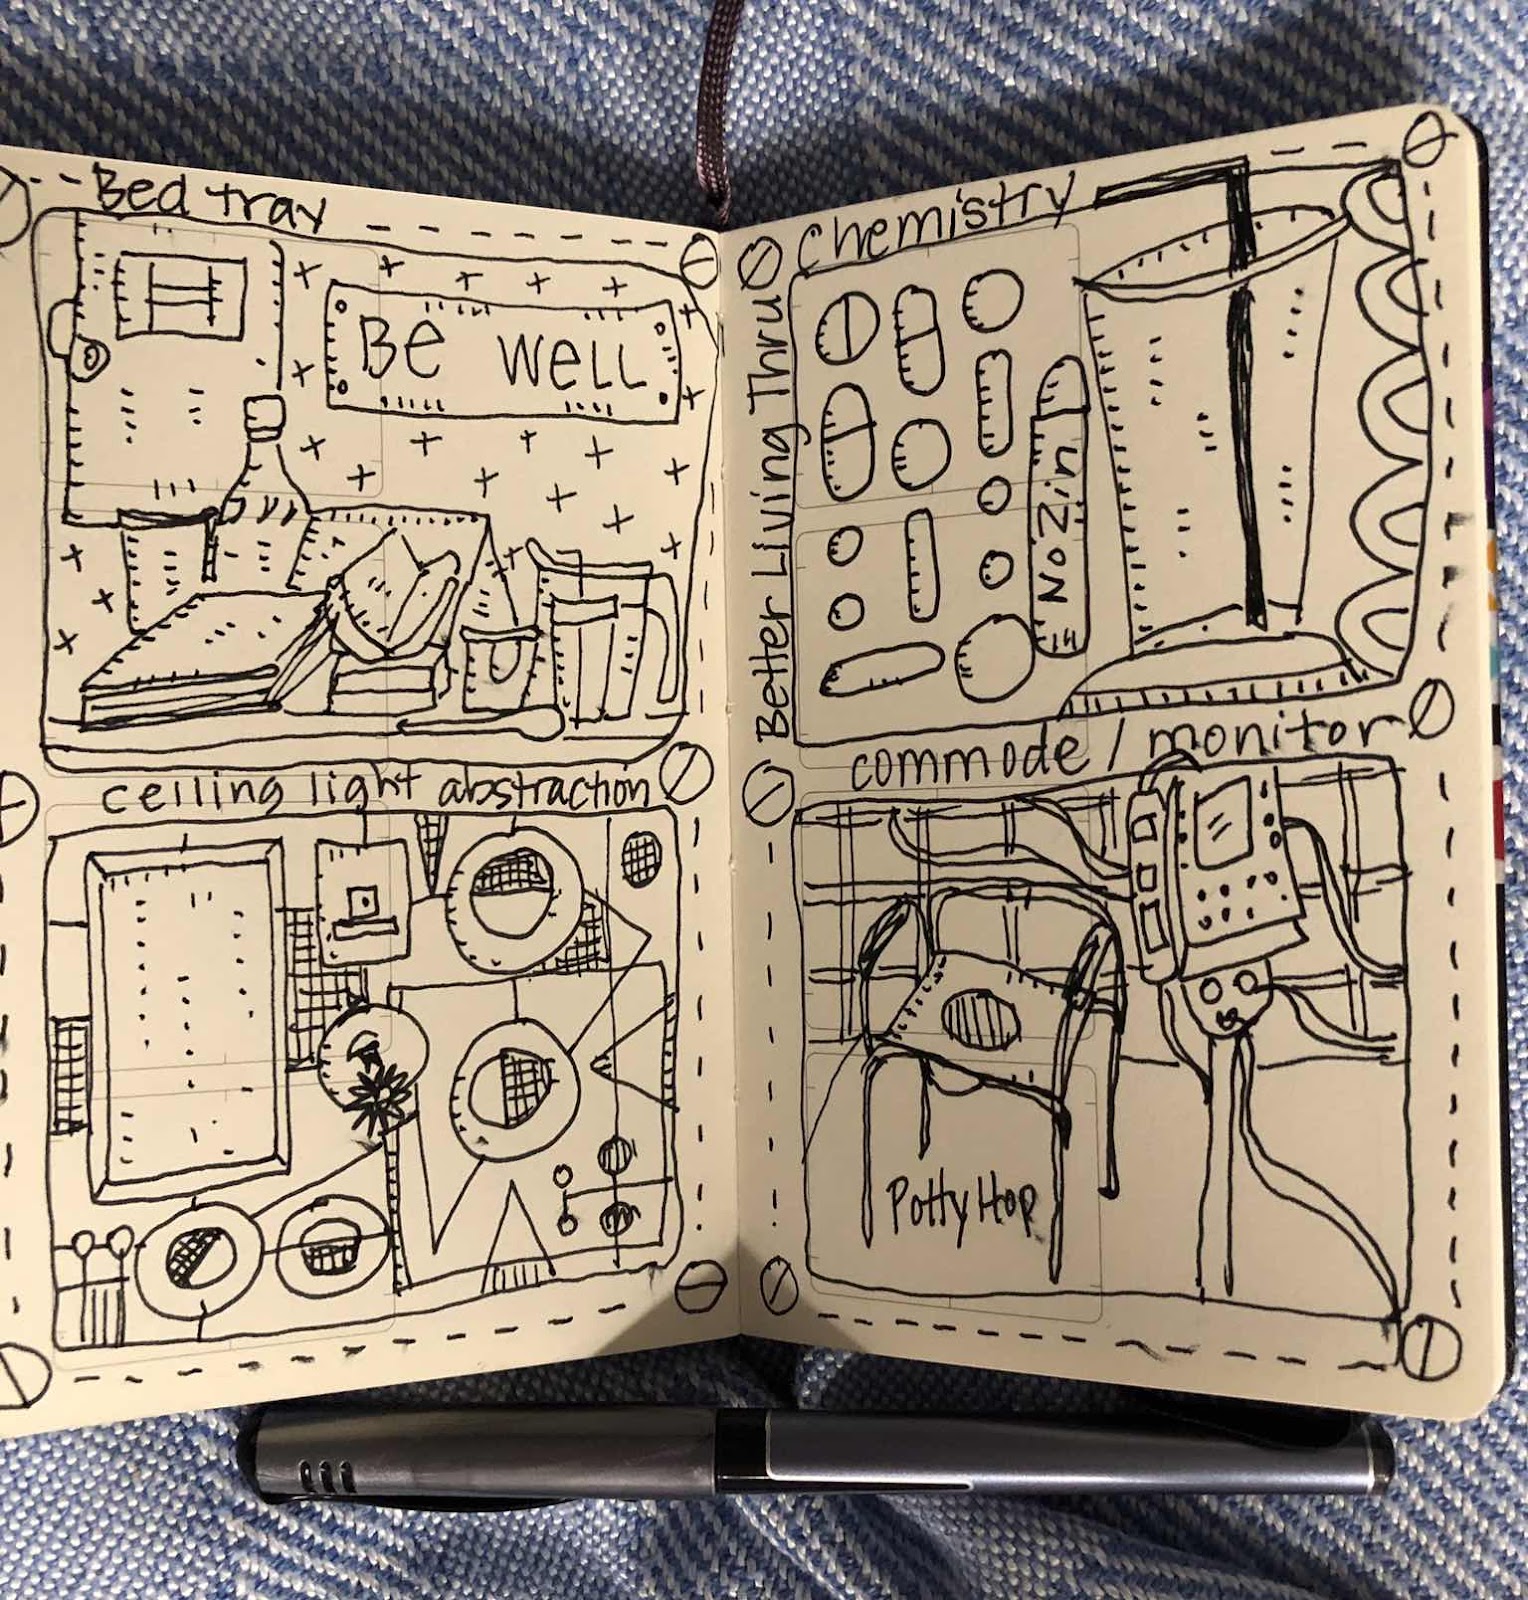 Bed tray
BE WELL
ceiling light abstraction
Better Living Thru
Chemistry
commode / monitor
Potty Hop